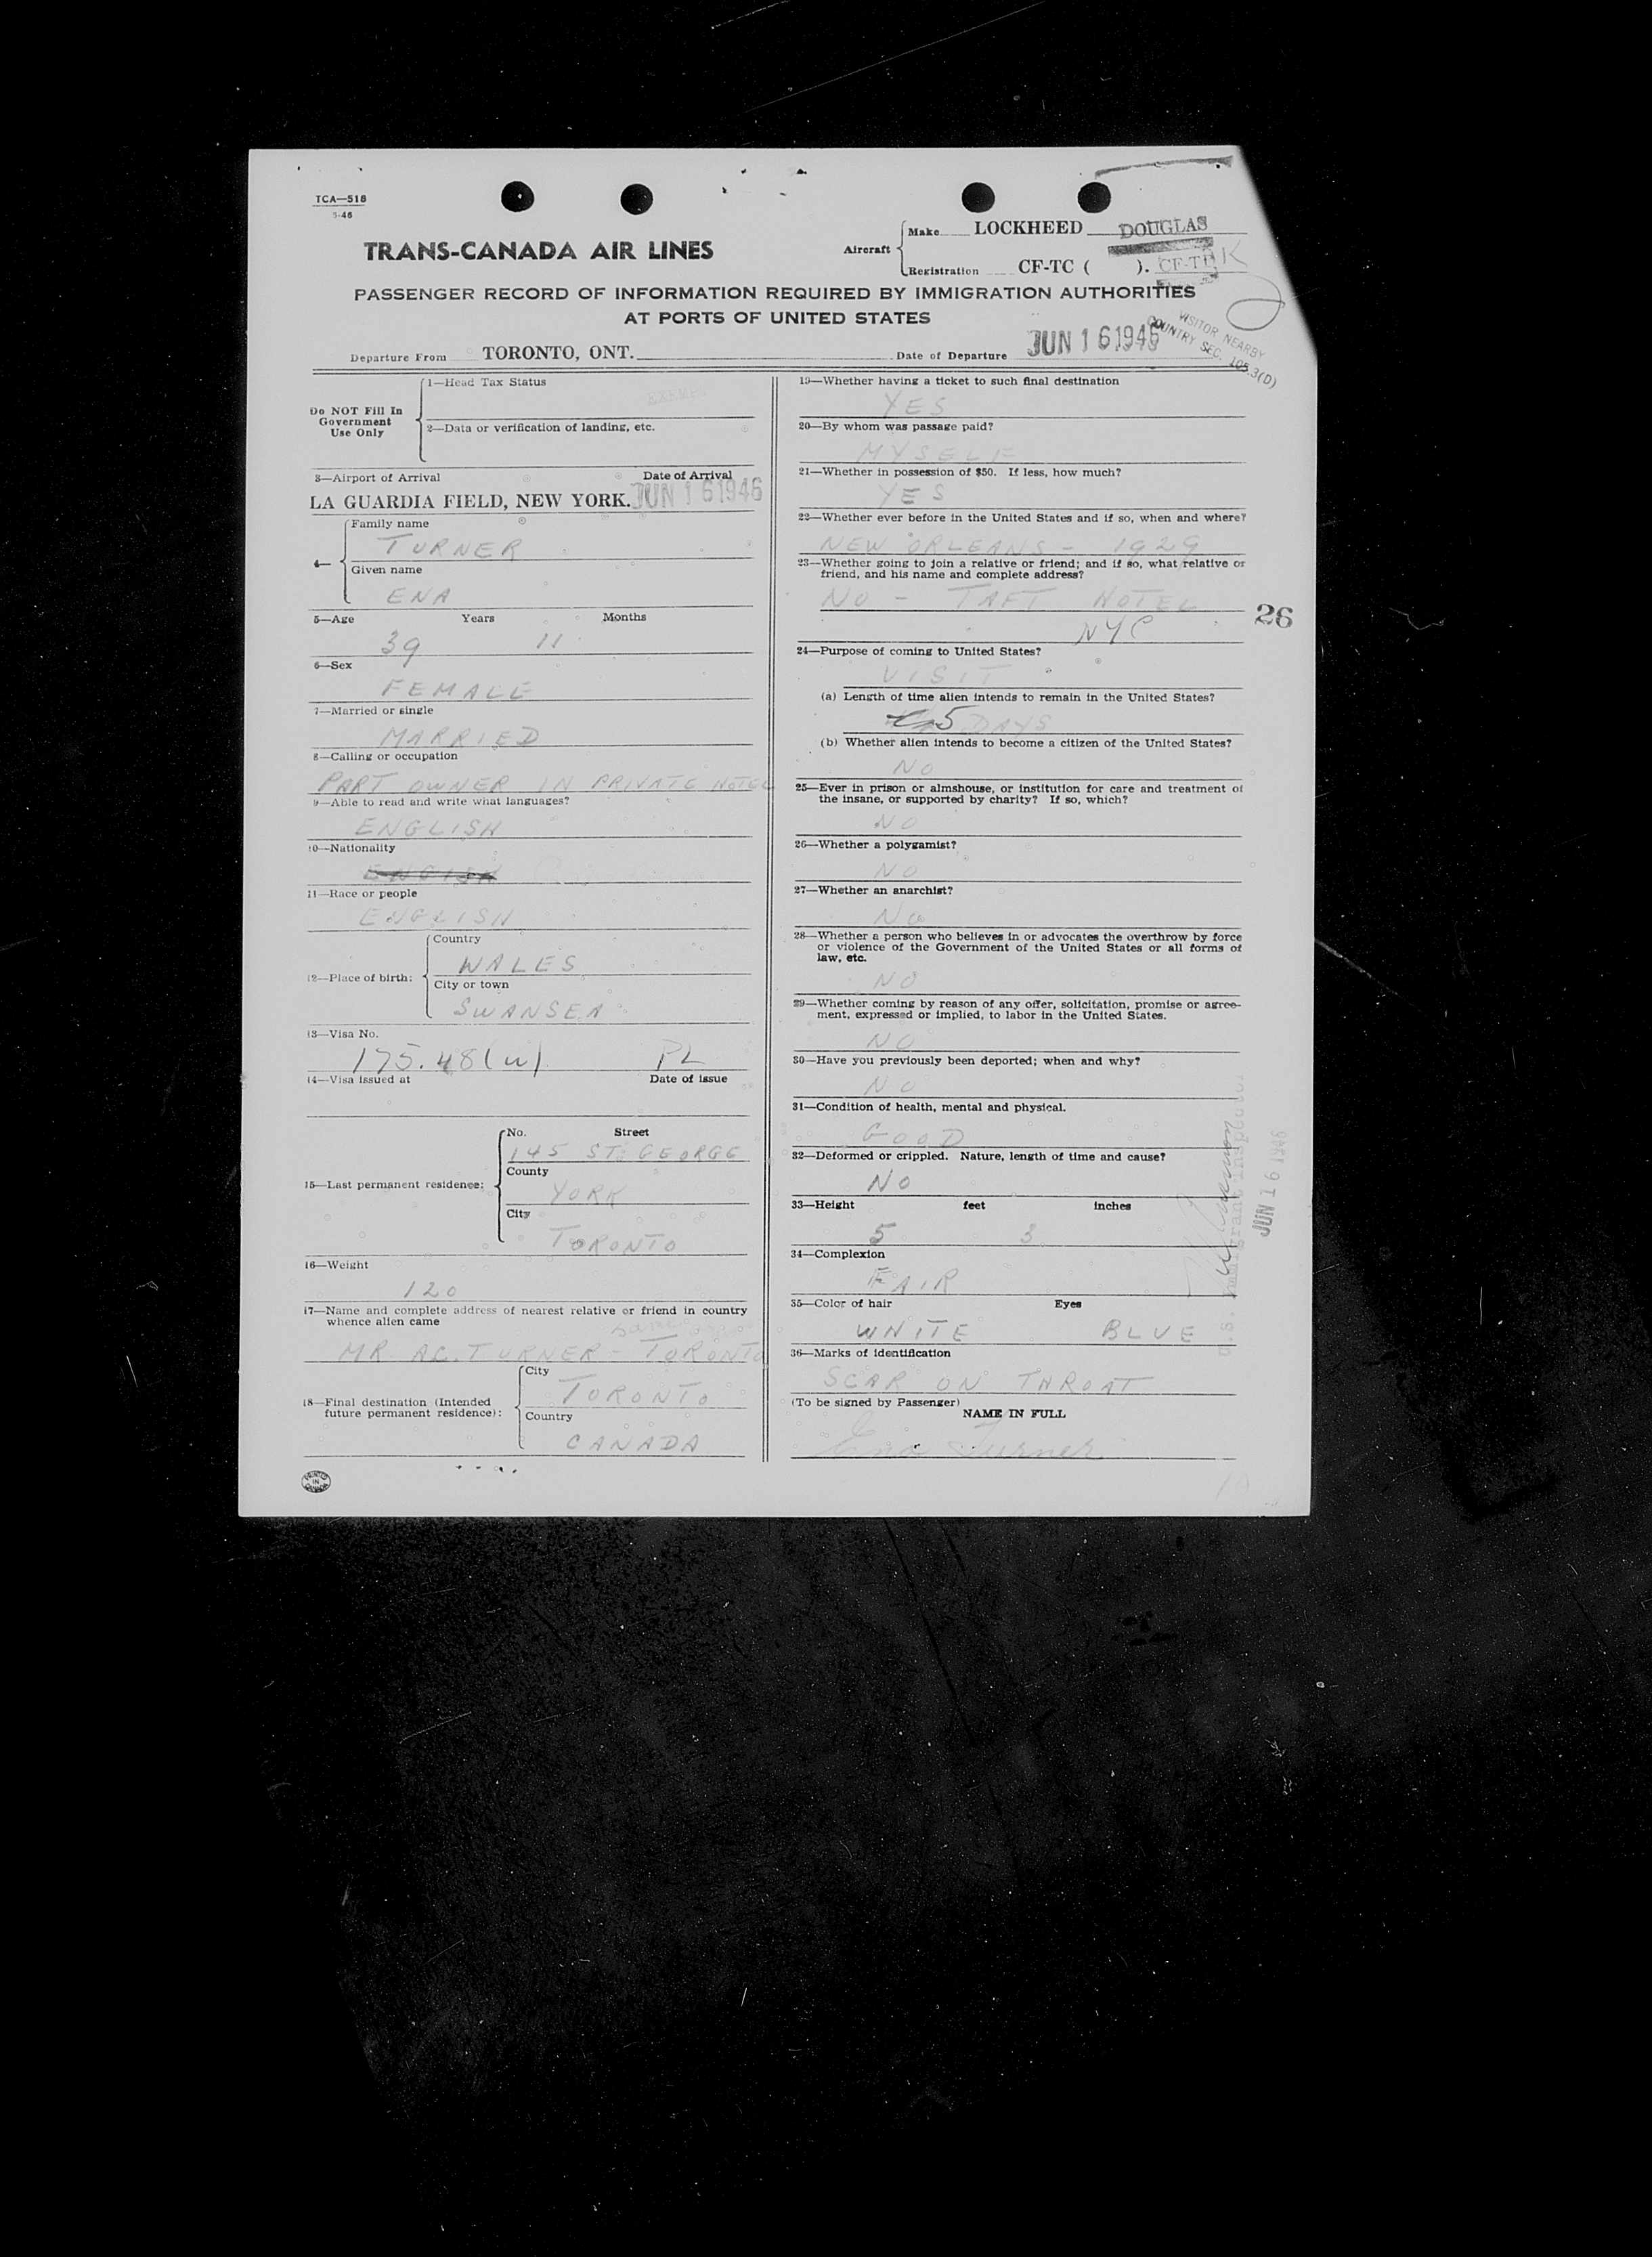 TCA—518
3-46
TRANS-CANADA AIR LINES
Aircraft
Make LOCKHEED DOUGLAS
Registration CF-TC ( ). CF-T K
PASSENGER RECORD OF INFORMATION REQUIRED BY IMMIGRATION AUTHORITIES
AT PORTS OF UNITED STATES
VISITOR NEARBY
COUNTRY SEC. 105.3(D)
Departure From TORONTO, ONT. Date of Departure JUN 16 1946
Do NOT Fill In
Government
Use Only
1—Head Tax Status
EXEMPT
2—Data or verification of landing, etc.
3—Airport of Arrival Date of Arrival
LA GUARDIA FIELD, NEW YORK. JUN 16 1946
4—
Family name
TURNER
Given name
ENA
5—Age Years Months
39 11
6—Sex
FEMALE
7—Married or single
MARRIED
8—Calling or occupation
PART OWNER IN PRIVATE HOTEL
9—Able to read and write what languages?
ENGLISH
10—Nationality
11—Race or people
ENGLISH
12—Place of birth:
Country
WALES
City or town
SWANSEA
13—Visa No.
175.48(w) PL
14—Visa issued at Date of issue
15—Last permanent residence:
No. Street
145 ST. GEORGE
County
YORK
City
TORONTO
16—Weight
120
17—Name and complete address of nearest relative or friend in country
whence alien came
same
MR. AC. TURNER - TORONTO
18—Final destination (Intended
future permanent residence):
City
TORONTO
Country
CANADA
PRINTED
IN
CANADA
19—Whether having a ticket to such final destination
YES
20—By whom was passage paid?
MYSELF
21—Whether in possession of $50. If less, how much?
YES
22—Whether ever before in the United States and if so, when and where?
NEW ORLEANS - 1929
23—Whether going to join a relative or friend; and if so, what relative or
friend, and his name and complete address?
NO - TAFT HOTEL
NYC
26
24—Purpose of coming to United States?
VISIT
(a) Length of time alien intends to remain in the United States?
5 DAYS
(b) Whether alien intends to become a citizen of the United States?
NO
25—Ever in prison or almshouse, or institution for care and treatment of
the insane, or supported by charity? If so, which?
NO
26—Whether a polygamist?
NO
27—Whether an anarchist?
NO
28—Whether a person who believes in or advocates the overthrow by force
or violence of the Government of the United States or all forms of
law, etc.
NO
29—Whether coming by reason of any offer, solicitation, promise or agree-
ment, expressed or implied, to labor in the United States.
NO
30—Have you previously been deported; when and why?
NO
31—Condition of health, mental and physical.
GOOD
32—Deformed or crippled. Nature, length of time and cause?
NO
33—Height feet inches
5 3
34—Complexion
FAIR
35—Color of hair Eyes
WHITE BLUE
36—Marks of identification
SCAR ON THROAT
(To be signed by Passenger)
NAME IN FULL
Ena Turner
U.S. Immigrant Inspector
JUN 16 1946